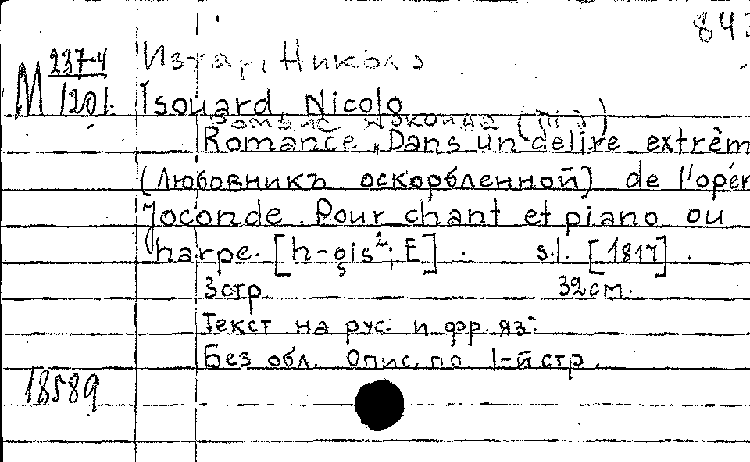 843
М 237-4 Изуар, Николо
1201 Isouard, Nicolo
Романс Жоконда (III д)
Romance „Dans un délire extrêm
(Любовникъ оскорбленной) de l'opér
Joconde. Pour chant et piano ou
harpe. [h-gis²; E]. s.l. [1817].
3 стр. 32 см.
Текст на рус. и фр. яз.
Без обл. Опис. по 1-й стр.
18589